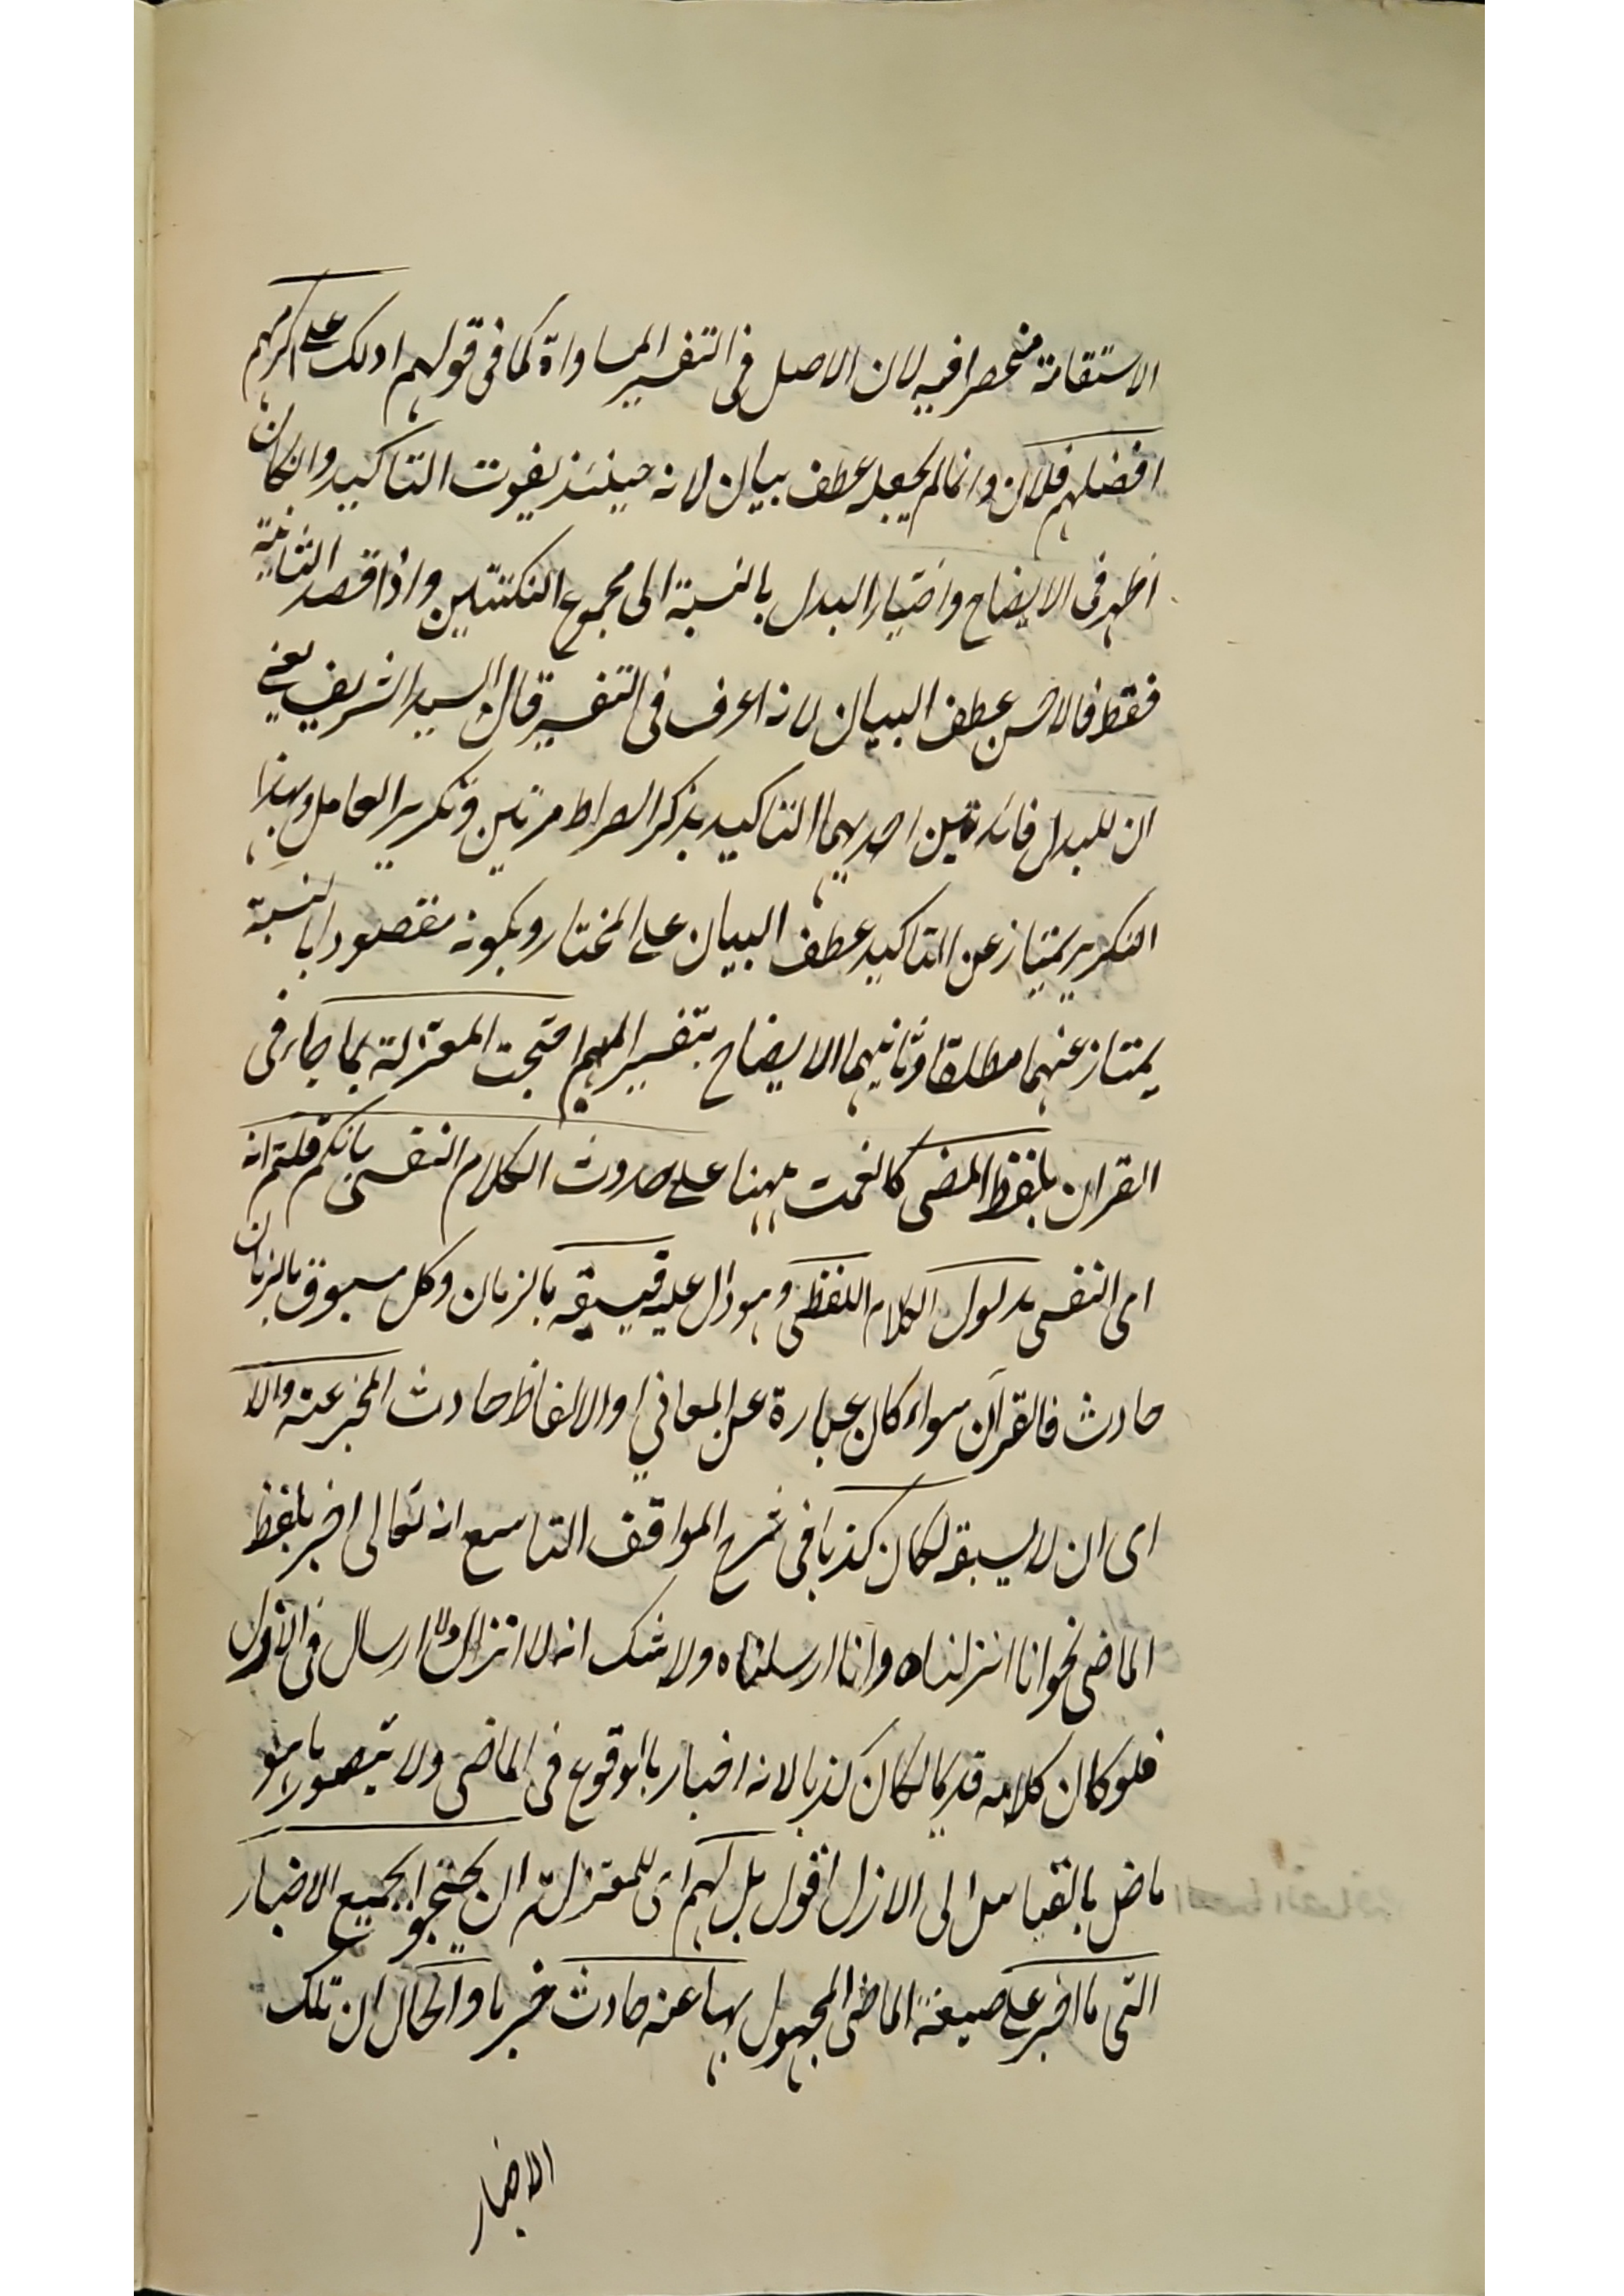 الاستقامة منحصرا فيه لان الاصل فى التفسير المساواة كما فى قولهم ادلك على اكرمهم
افضلهم فلان وانما لم يجعله عطف بيان لانه حينئذ يفوت التاكيد وان كان
اظهر فى الايضاح واختيار البدل بالنسبة الى مجموع النكتتين واذا قصد الثانية
فقط فالاحسن عطف البيان لانه اعرف فى التفسير قال السيد الشريف يعنى
ان للبدل فائدتين احديهما التاكيد بذكر الصراط مرتين وتكرير العامل وبهذا
التكرير يمتياز عن التاكيد عطف البيان على المختار وبكونه مقصودا بالنسبة
يمتاز عنهما مطلقا وثانيهما الايضاح بتفسير المبهم احتجت المعتزلة بما جاء فى
القران بلفظ المضى كانعمت ههنا على حدوث الكلام النفسى بانكم قلتم انه
اى النفسى مدلول الكلام اللفظى وهو دال عليه فيسبقه بالزمان وكل مسبوق بالزمان
حادث فالقرآن سواء كان عبارة عن المعانى او الالفاظ حادث المخبر عنه والا
اى ان لا يسبقه لكان كذبا فى شرح المواقف التاسع انه تعالى اخبر بلفظ
الماضى نحو انا انزلناه وانا ارسلناه ولا شك انه لا انزال ولا ارسال فى الازل
فلو كان كلامه قديما لكان كذبا لانه اخبار بالوقوع فى الماضى ولا يتصور ما هو
ماض بالقياس الى الازل اقول بل لهم اى للمعتزلة ان يحتجوا بجميع الاخبار
التى ما اخبر على صيغة الماضى المجهول بها عنه حادث خبر ما والحال ان تلك
الاخبار